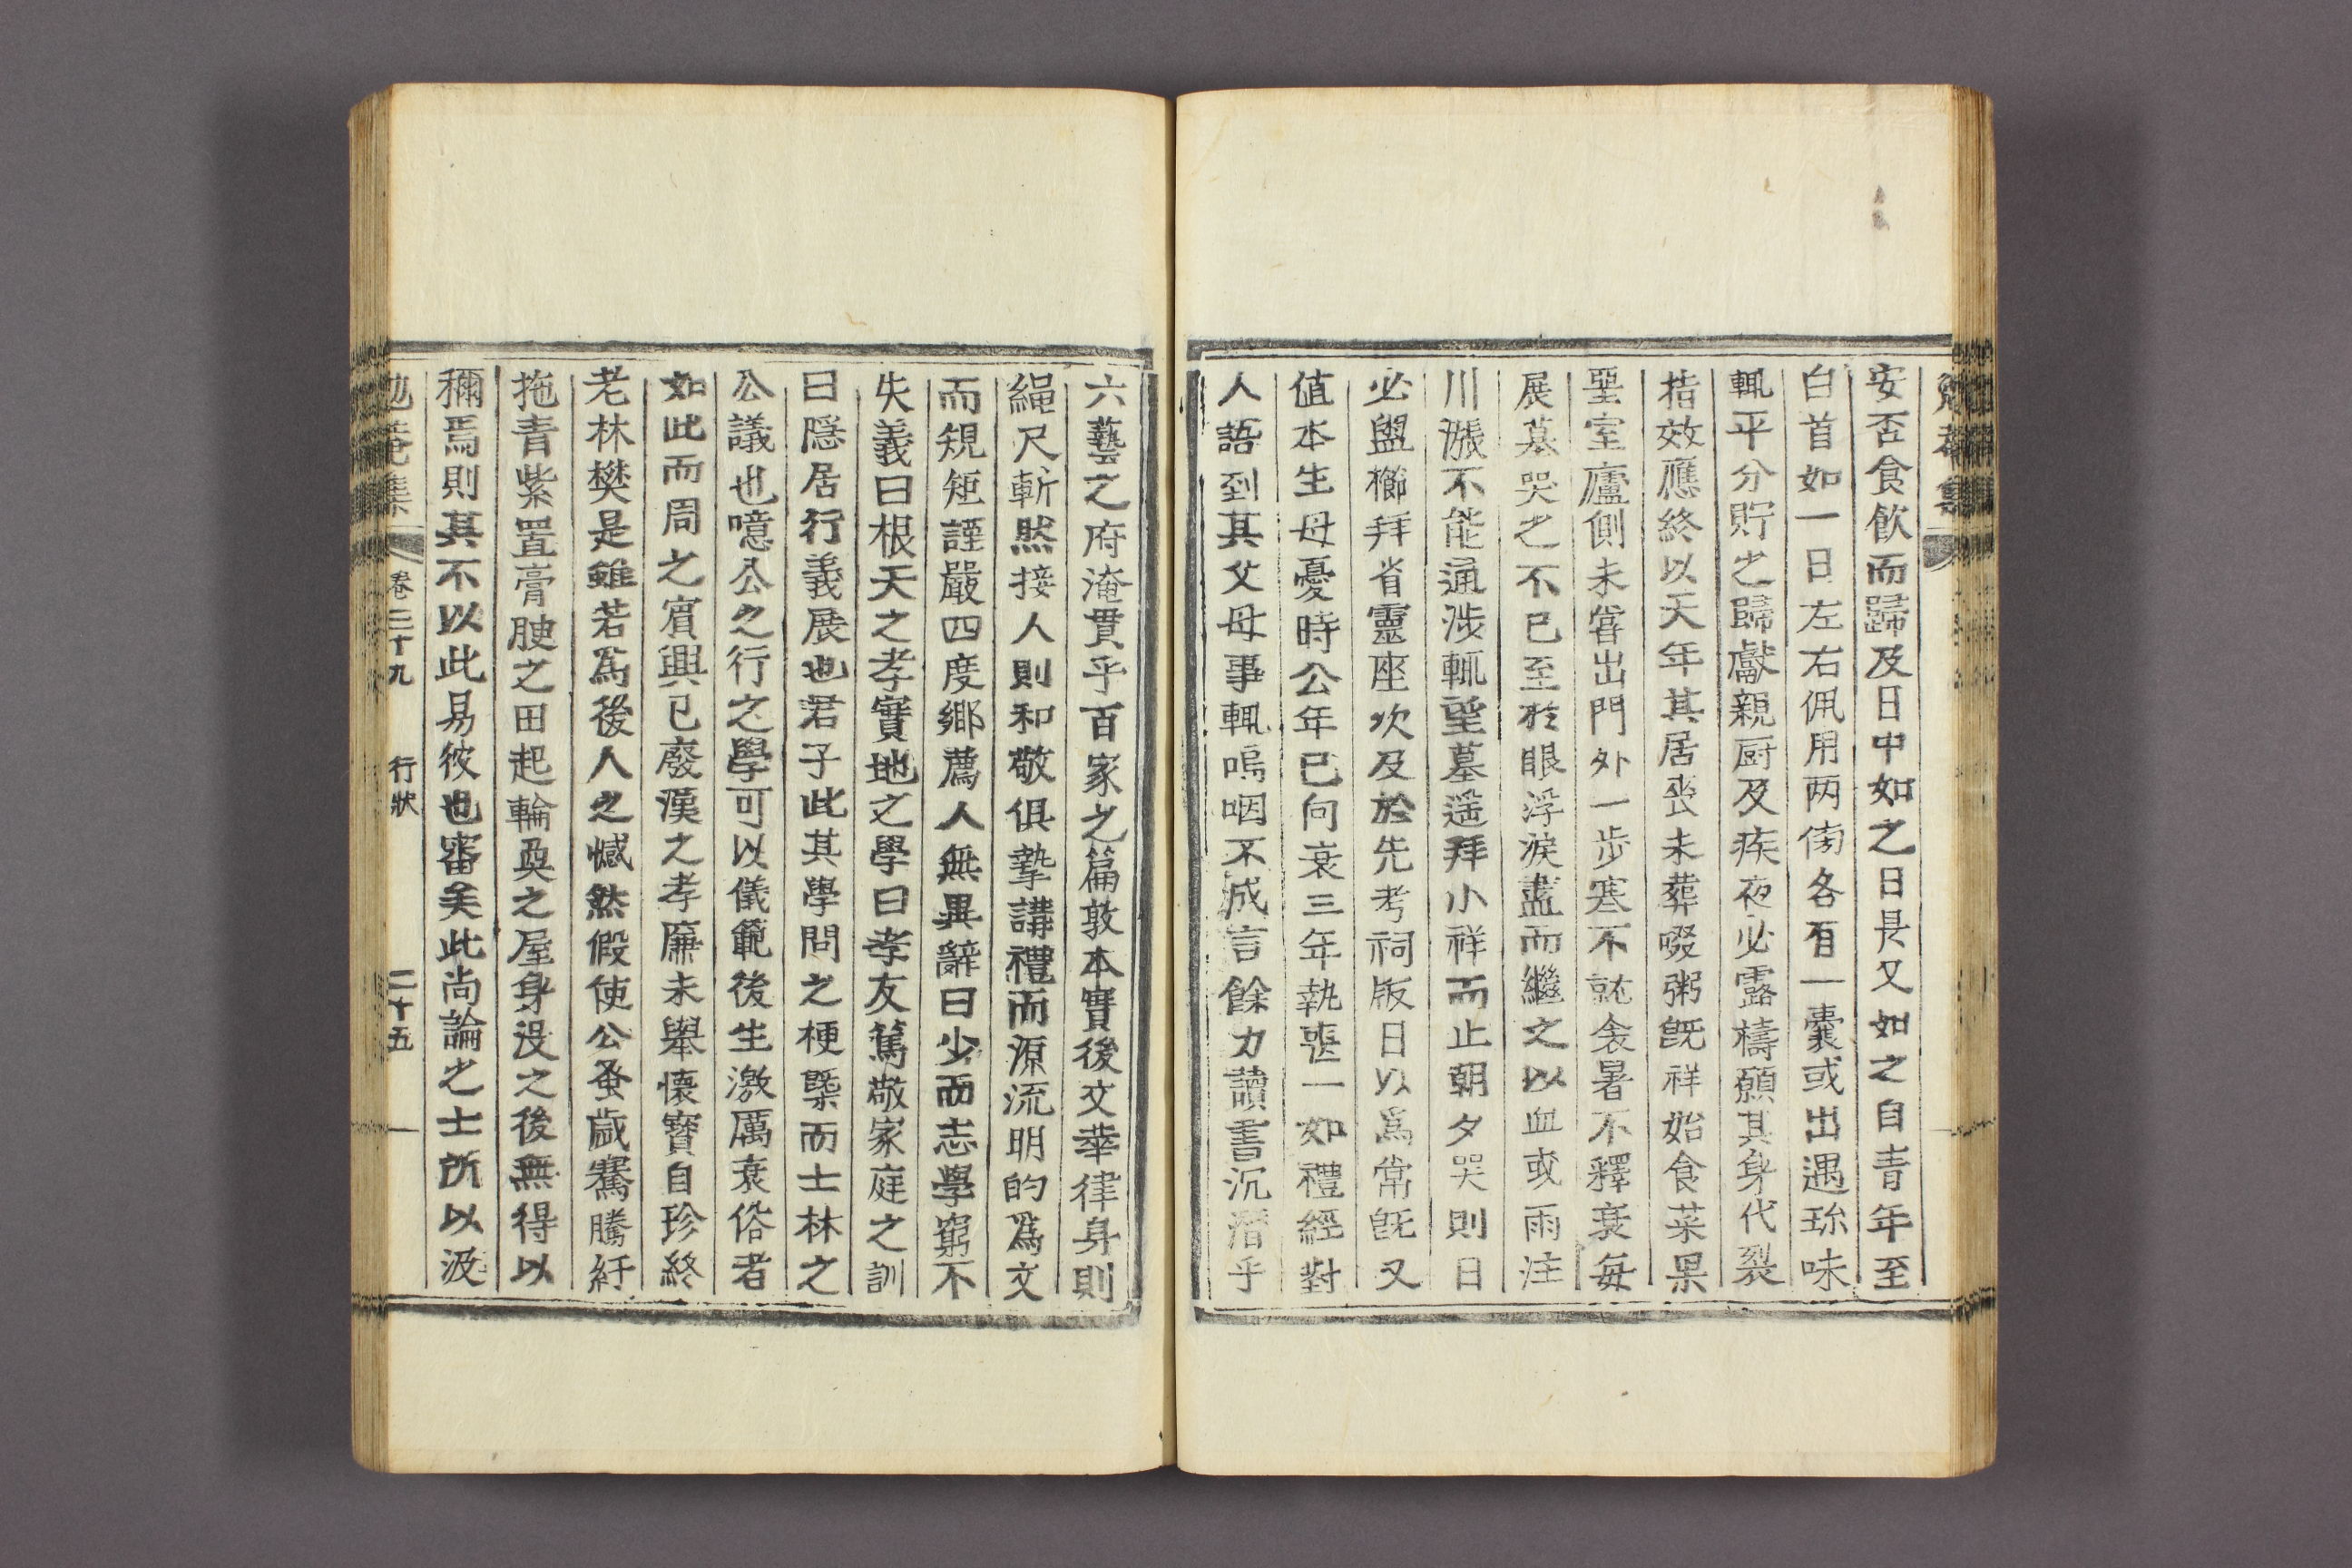 安否食飮而歸及日中如之日昃又如之自青年至
白首如一日左右佩用两傍各有一囊或出遇珎味
輒平分貯之歸獻親厨及疾夜必露禱願其身代裂
指效應終以天年其居喪未葬啜粥旣祥始食菜果
堊室廬側未甞出門外一步寒不就衾暑不釋衰每
展墓哭之不已至於眼浮淚盡而繼之以血或雨注
川漲不能通涉輒望墓遥拜小祥而止朝夕哭則日
必盥櫛拜省靈座次及於先考祠版日以爲常旣又
值本生母憂時公年已向衰三年執喪一如禮經對
人語到其父母事輒嗚咽不成言餘力讀書沉潛乎
六藝之府淹貫乎百家之篇敦本實後文華律身則
繩尺斬然接人則和敬俱摯講禮而源流明的爲文
而規矩謹嚴四度鄕薦人無異辭曰少而志學窮不
失義曰根天之孝實地之學曰孝友篤敬家庭之訓
曰隱居行義展也君子此其學問之梗槩而士林之
公議也噫公之行之學可以儀範後生激厲衰俗者
如此而周之賓興已廢漢之孝廉未舉懷寶自珍終
老林樊是雖若爲後人之憾然假使公蚤歲騫騰紆
拖青紫置膏腴之田起輪奐之屋身沒之後無得以
稱焉則其不以此易彼也審矣此尙論之士所以汲
卷二十九 行狀 二十五